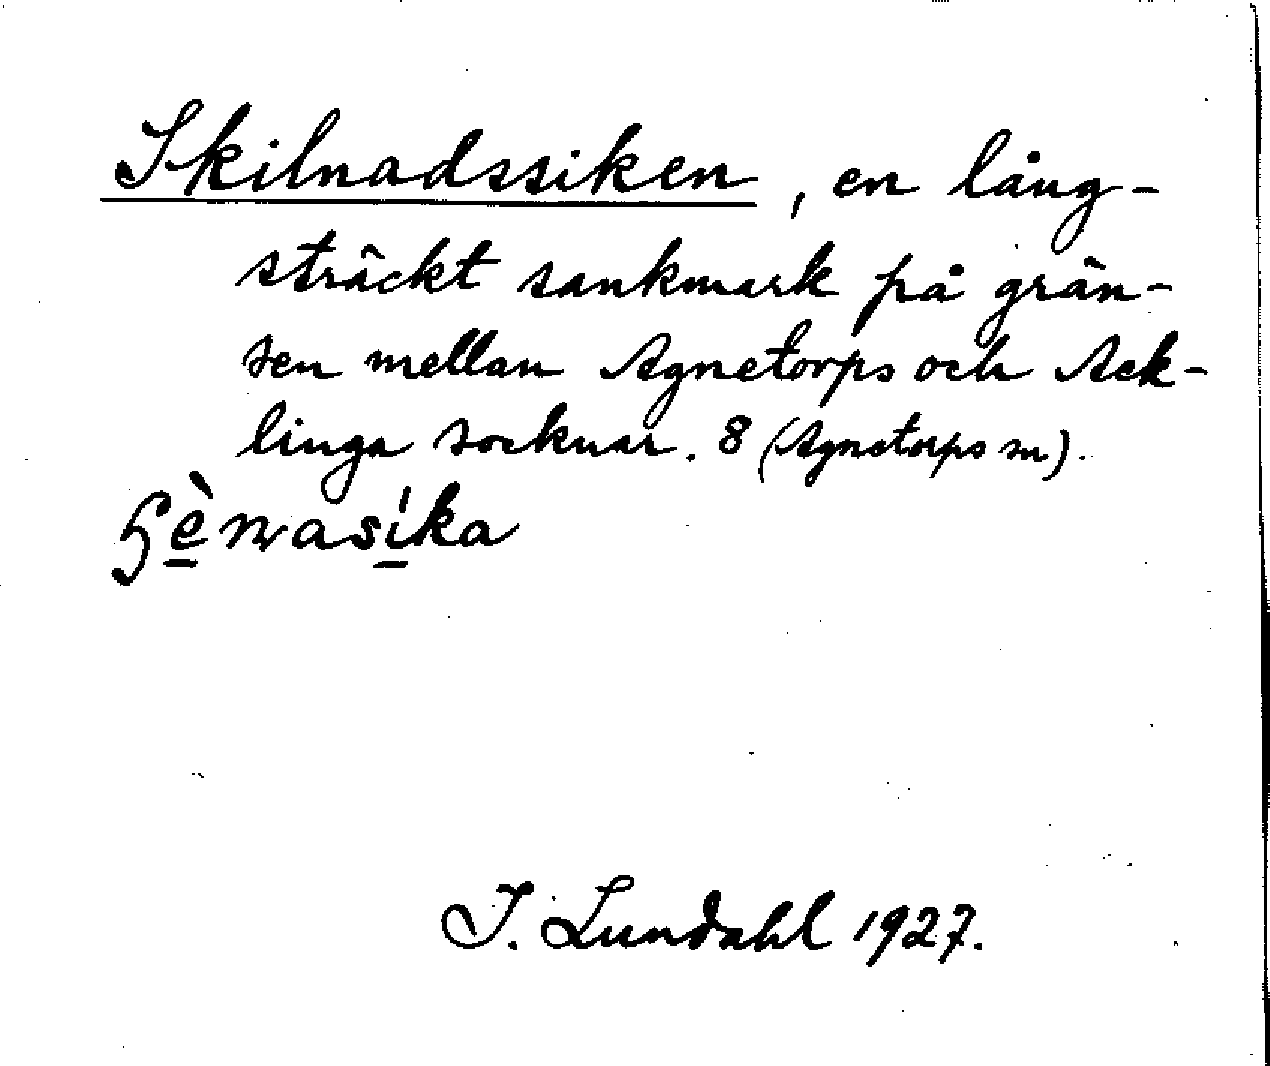 Skilnadssiken, en lång-
sträckt sankmark på grän-
sen mellan Agnetorps och Ack-
linga socknar. 8 (Agnetorps sn).
I. Lundahl 1927.